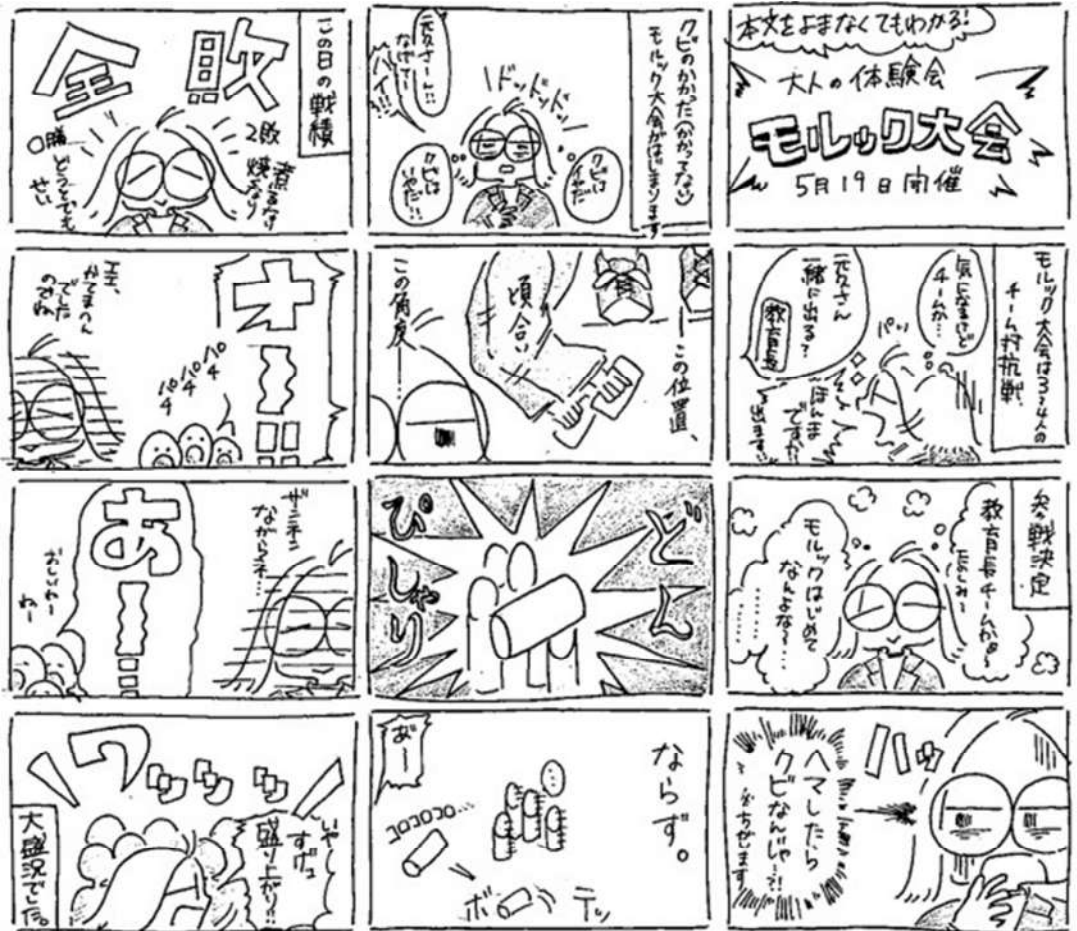 本文をよまなくてもわかる!
大人の体験会
モルック大会
5月19日開催
モルック大会は3〜4人の
チーム対抗戦、
気になるけど
チームか…
パッ
元久さん
一緒に出る?
教育長
ほんま
ですか
出ます
参戦決定
教育長チームかぁ〜
楽しみ〜
モルックはじめて
なんよな〜…
ハッ
ヘマしたら
クビなんじゃ…?!
クビのかかった(かかってない)
モルック大会がはじまります
ドッドッドッ
元久さーん!!
なげて〜
ハイ!!!
クビは
イヤだ
クビは
いやだ!!
この位置、
頃合い
この角度…
どん
ぴしゃり
ならず。
…
あ゛ー
コロコロコロ…
ボテッ
この日の戦績
全敗
2敗
0勝
煮るなり
焼くなり
どうでも
せい
オーーー!!
パチパチパチ
エエ、
かてません
でした
のでね
ザンネン
ながらネ…
あーーー…
おしいねー
ねー
ワッッッ
いやー
すげぇ
盛り上がり!!
大盛況でした。